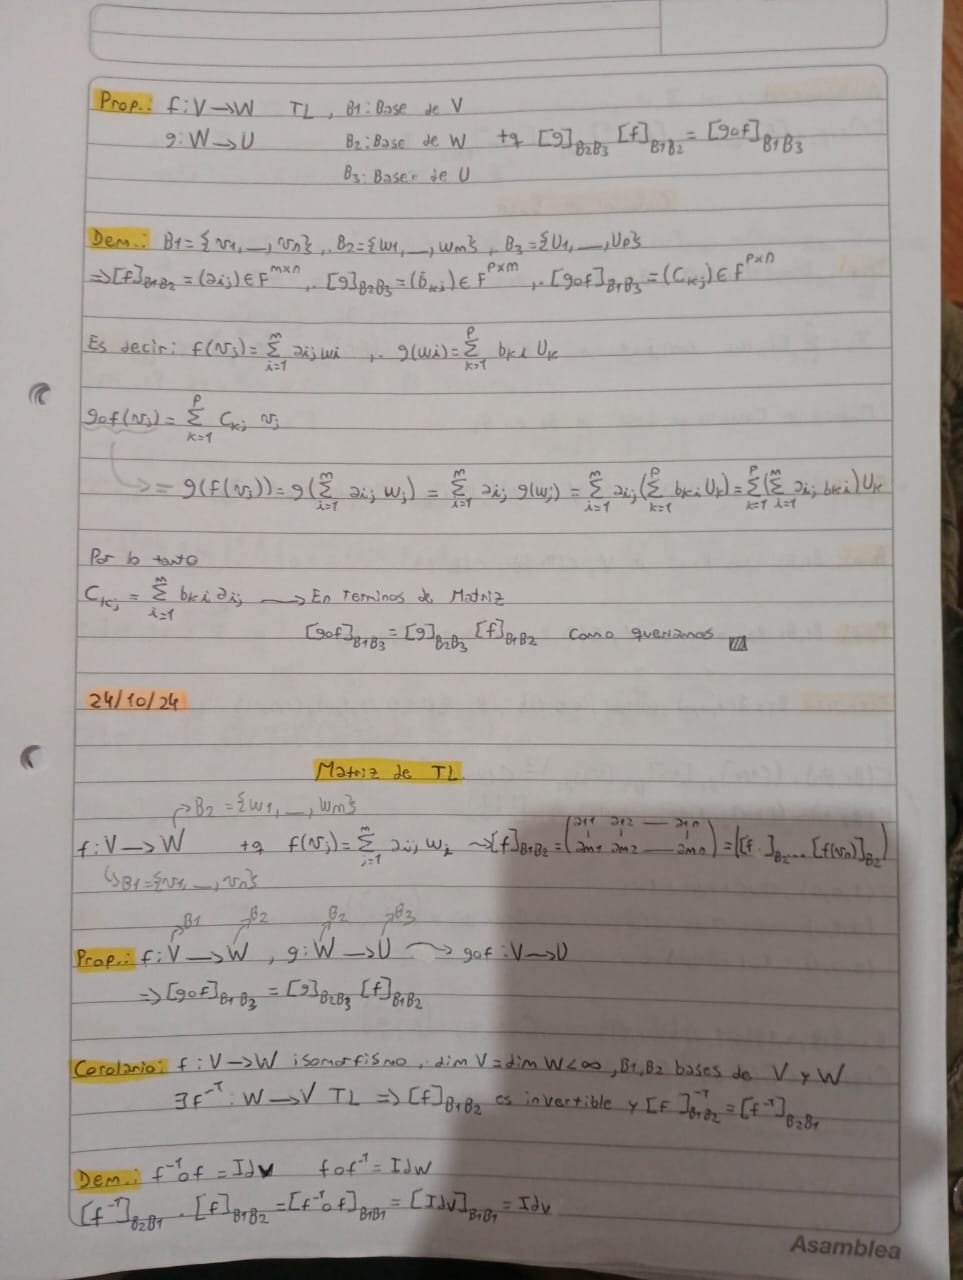 Prop.: f: V → W TL, B1: Base de V
g: W → U B2: Base de W tq [g]_{B2B3} [f]_{B1B2} = [gof]_{B1B3}
B3: Base de U
Dem.: B1 = {v1, _, vn}, B2 = {w1, _, wm}, B3 = {U1, _, Up}
⇒ [f]_{B1B2} = (aij) ∈ F^{m×n}, [g]_{B2B3} = (bki) ∈ F^{p×m}, [gof]_{B1B3} = (Ckj) ∈ F^{p×n}
Es decir: f(vj) = Σ_{i=1}^{m} aij wi, g(wi) = Σ_{k=1}^{p} bki Uk
gof(vj) = Σ_{k=1}^{p} Ckj vj
→ = g(f(vj)) = g(Σ_{i=1}^{m} aij wj) = Σ_{i=1}^{m} aij g(wj) = Σ_{i=1}^{m} aij (Σ_{k=1}^{p} bki Uk) = Σ_{k=1}^{p} (Σ_{i=1}^{m} aij bki) Uk
Por lo tanto
Ckj = Σ_{i=1}^{m} bki aij → En Terminos de Matriz
[gof]_{B1B3} = [g]_{B2B3} [f]_{B1B2} como queriamos
24/10/24
Matriz de TL
B2 = {w1, _, wm}
f: V → W tq f(vj) = Σ_{i=1}^{m} aij wi ⇝ [f]_{B1B2} = (a11 a12 — a1n ; am1 am2 — amn) = ([f ]_{B2} ... [f(vn)]_{B2})
B1 = {v1, _, vn}
B1 B2 B2 B3
Prop.: f: V → W, g: W → U → gof: V → U
⇒ [gof]_{B1B3} = [g]_{B2B3} [f]_{B1B2}
Corolario: f: V → W isomorfismo, dim V = dim W < ∞, B1, B2 bases de V y W
∃ f^{-1}: W → V TL ⇒ [f]_{B1B2} es invertible y [f]^{-1}_{B1B2} = [f^{-1}]_{B2B1}
Dem.: f^{-1}of = Idv fof^{-1} = IdW
[f^{-1}]_{B2B1} . [f]_{B1B2} = [f^{-1}of]_{B1B1} = [Idv]_{B1B1} = Idv
Asamblea